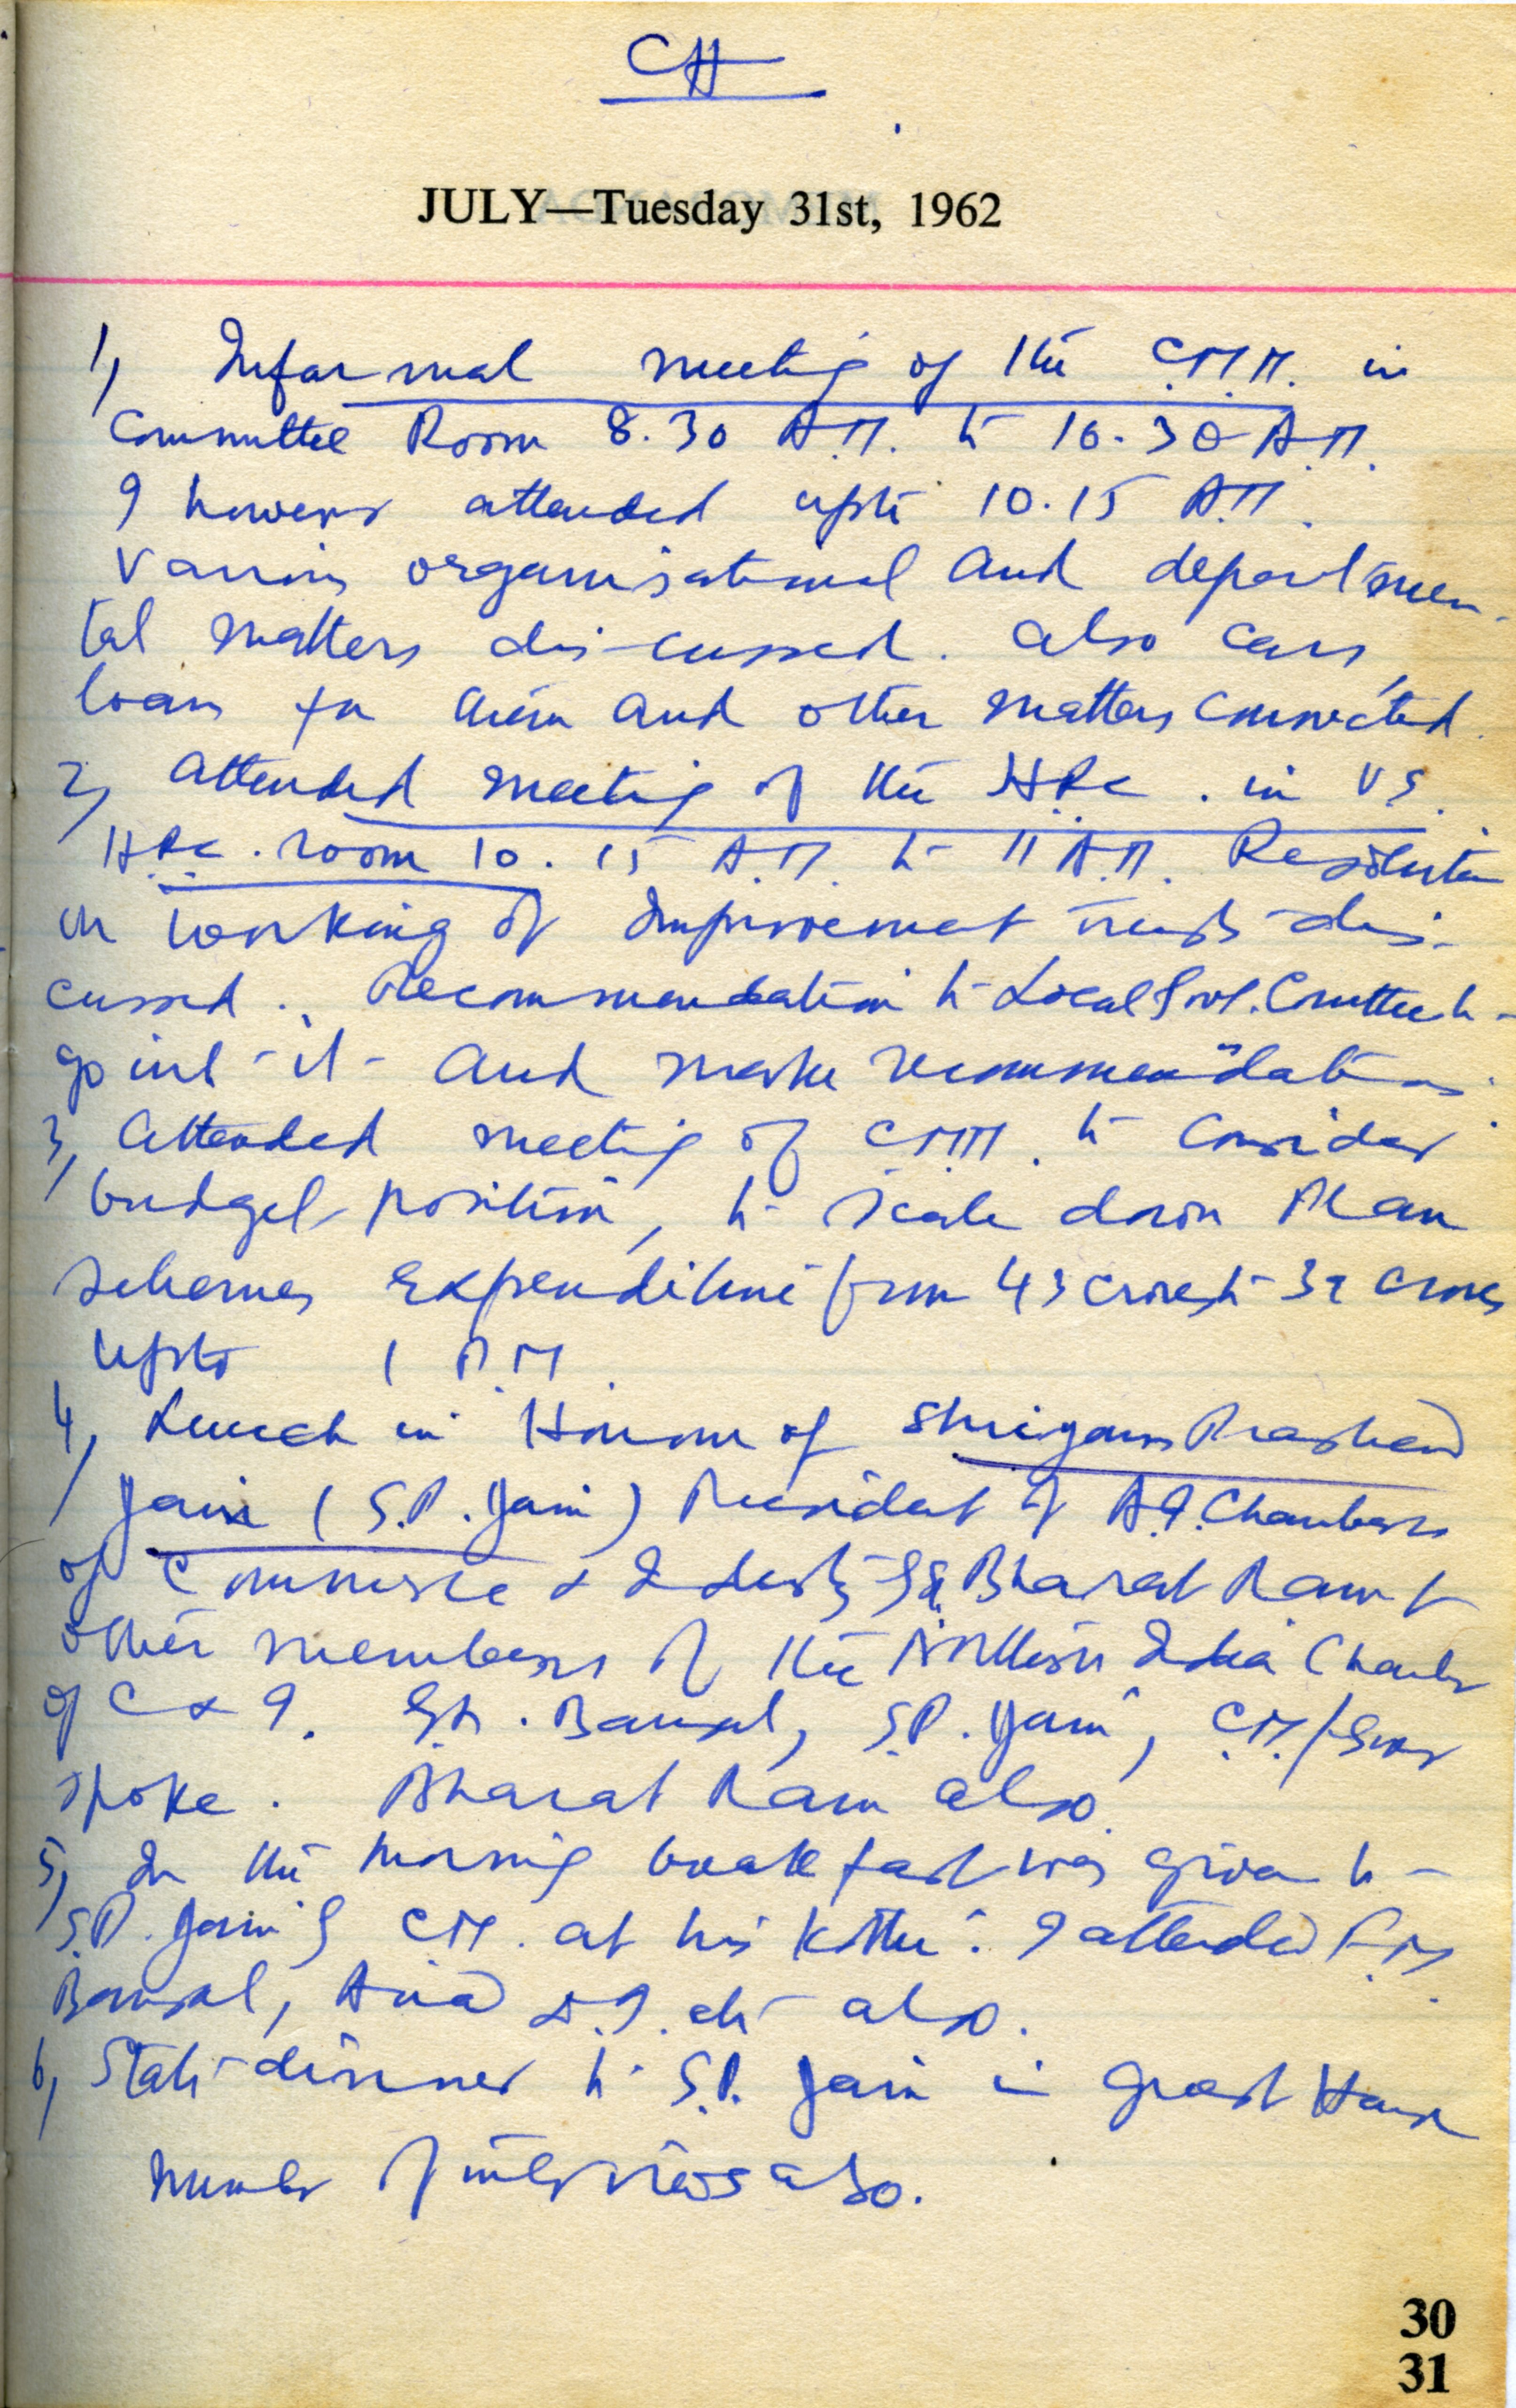 CH
JULY—Tuesday 31st, 1962
1, Informal meeting of the C.M.M. in
Committee Room 8.30 A.M. to 10.30 A.M.
I however attended upto 10.15 A.M.
Various organisational and departmen-
tal matters discussed. Also cars,
loans for them and other matters connected.
2, Attended meeting of the H.P.C. in V.S.
H.P.C. room 10.15 A.M. to 11 A.M. Resolution
on working of Improvement Trusts dis-
cussed. Recommendation to Local Govt. Committee to
go into it and make recommendations.
3, Attended meeting of C.M.M. to consider
budget position, to scale down Plan
schemes expenditure from 43 crores to 32 crores
upto 1 P.M.
4, Lunch in Honour of Shriyans Prashad
Jain (S.P. Jain) President of A.I. Chambers
of Commerce & Industry Bharat Ram &
other members of the Northern India Chamber
of C & I. Bansal, S.P. Jain, C.M./
spoke. Bharat Ram also.
5, In the morning breakfast was given to
S.P. Jain by CM. at his Kothi. I attended F.M.
Bansal, also.
6, State dinner to S.P. Jain in Guest House
Number of interviews also.
30
31